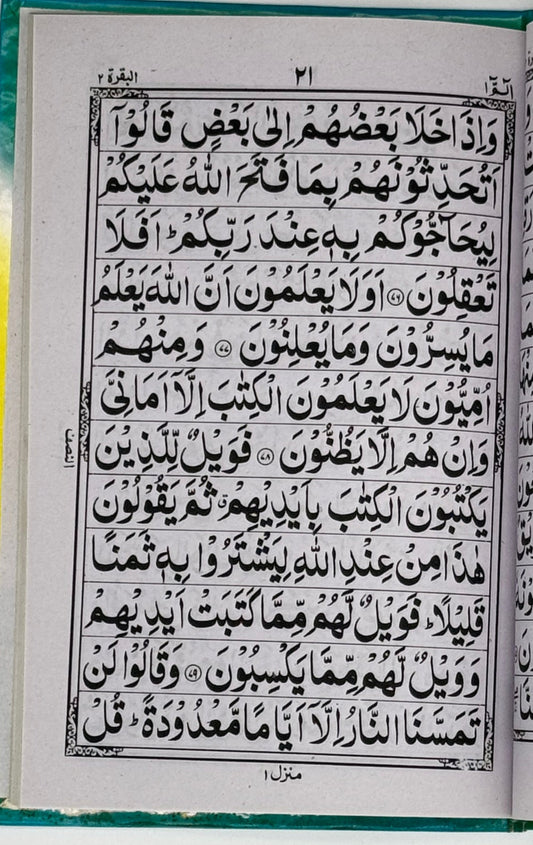 الٓمٓ ١
٢١
البقرة ٢
وَاِذَا خَلَا بَعْضُهُمْ اِلٰى بَعْضٍ قَالُوْٓا
اَتُحَدِّثُوْنَهُمْ بِمَا فَتَحَ اللّٰهُ عَلَيْكُمْ
لِيُحَآجُّوْكُمْ بِهٖ عِنْدَ رَبِّكُمْ ؕ اَفَلَا
تَعْقِلُوْنَ ﴿۷۶﴾ اَوَلَا يَعْلَمُوْنَ اَنَّ اللّٰهَ يَعْلَمُ
مَا يُسِرُّوْنَ وَمَا يُعْلِنُوْنَ ﴿۷۷﴾ وَمِنْهُمْ
اُمِّيُّوْنَ لَا يَعْلَمُوْنَ الْكِتٰبَ اِلَّآ اَمَانِيَّ
وَاِنْ هُمْ اِلَّا يَظُنُّوْنَ ﴿۷۸﴾ فَوَيْلٌ لِّلَّذِيْنَ
يَكْتُبُوْنَ الْكِتٰبَ بِاَيْدِيْهِمْ ۗ ثُمَّ يَقُوْلُوْنَ
هٰذَا مِنْ عِنْدِ اللّٰهِ لِيَشْتَرُوْا بِهٖ ثَمَنًا
قَلِيْلًا ؕ فَوَيْلٌ لَّهُمْ مِّمَّا كَتَبَتْ اَيْدِيْهِمْ
وَوَيْلٌ لَّهُمْ مِّمَّا يَكْسِبُوْنَ ﴿۷۹﴾ وَقَالُوْا لَنْ
تَمَسَّنَا النَّارُ اِلَّآ اَيَّامًا مَّعْدُوْدَةً ؕ قُلْ
النصف
منزل ١